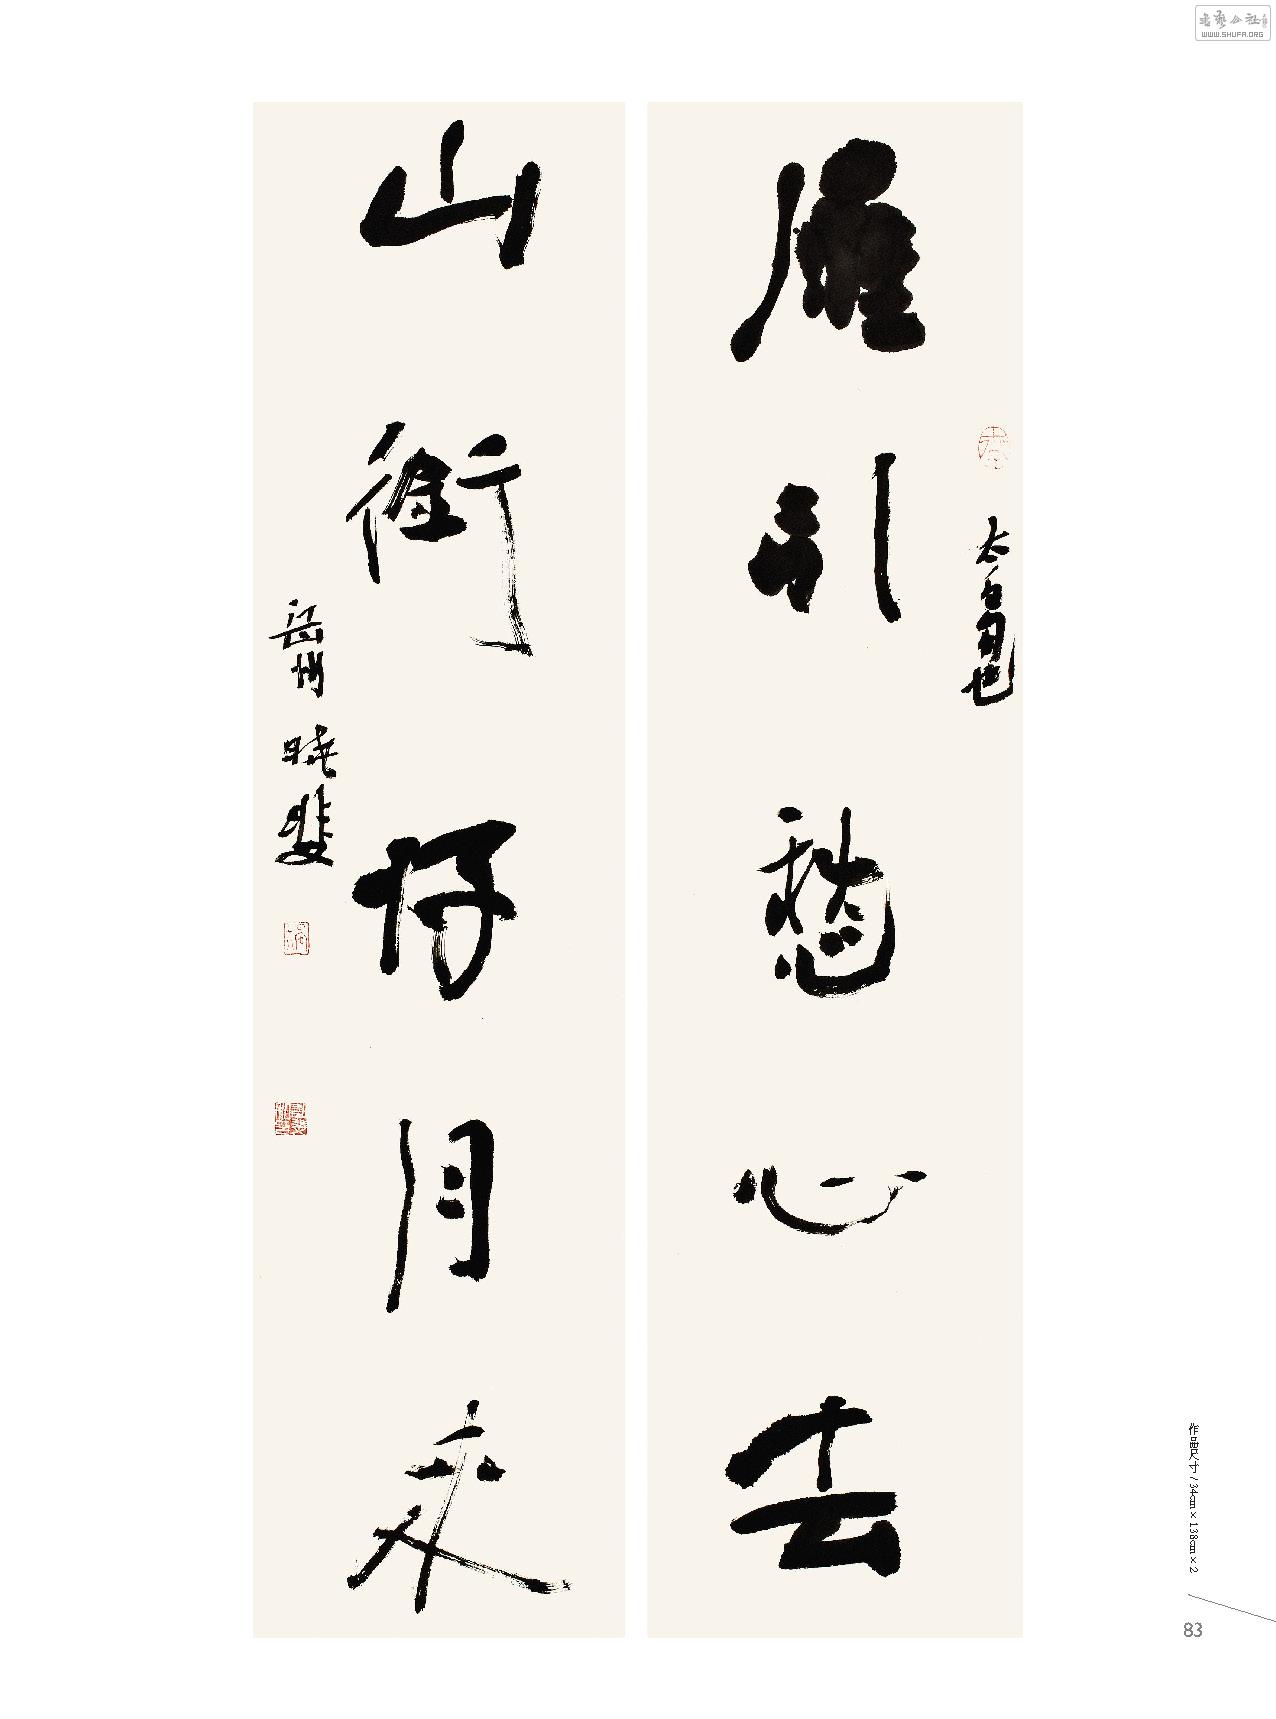 雁引愁心去
太白句也
山銜好月來
岳州
作品尺寸 / 34cm×138cm×2
83
書藝公社
WWW.SHUFA.ORG